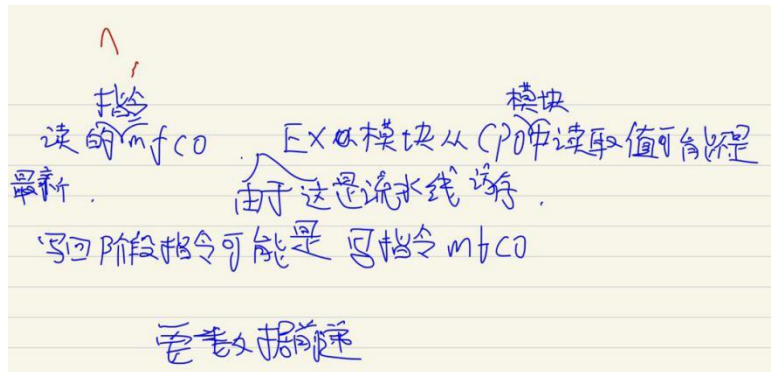 读的指令mfc0. EX模块从CP0模块中读取值可能不是
最新. 由于这是流水线
写回阶段指令可能是写指令mtc0
要数据前递